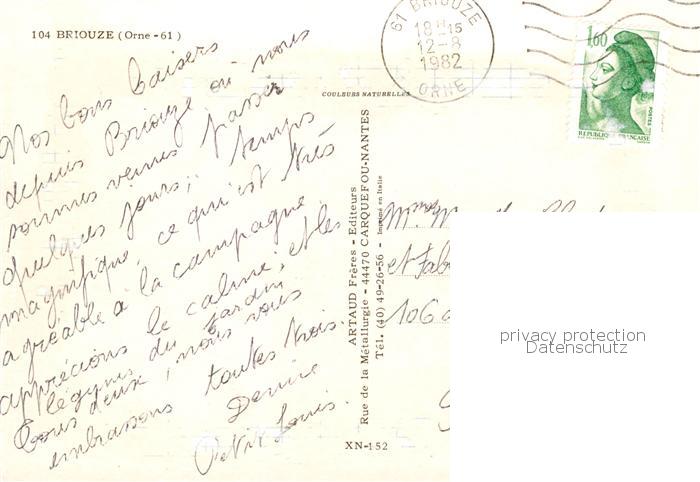 104 BRIOUZE (Orne - 61)
61 BRIOUZE
18H15
12-8
1982
ORNE
1,60
POSTES
REPUBLIQUE FRANÇAISE
COULEURS NATURELLES
Nos bons baisers
depuis Briouze où nous
sommes venus passer
quelques jours; temps
magnifique, ce qui est très
agréable à la campagne
apprécions le calme, et les
légumes du jardin
tous deux, nous vous
embrassons toutes trois.
Denise
Petit Louis.
ARTAUD Frères - Editeurs
Rue de la Métallurgie - 44470 CARQUEFOU-NANTES
Tél. (40) 49-26-56 - Imprimé en Italie
XN-152
et Fab
106
privacy protection
Datenschutz